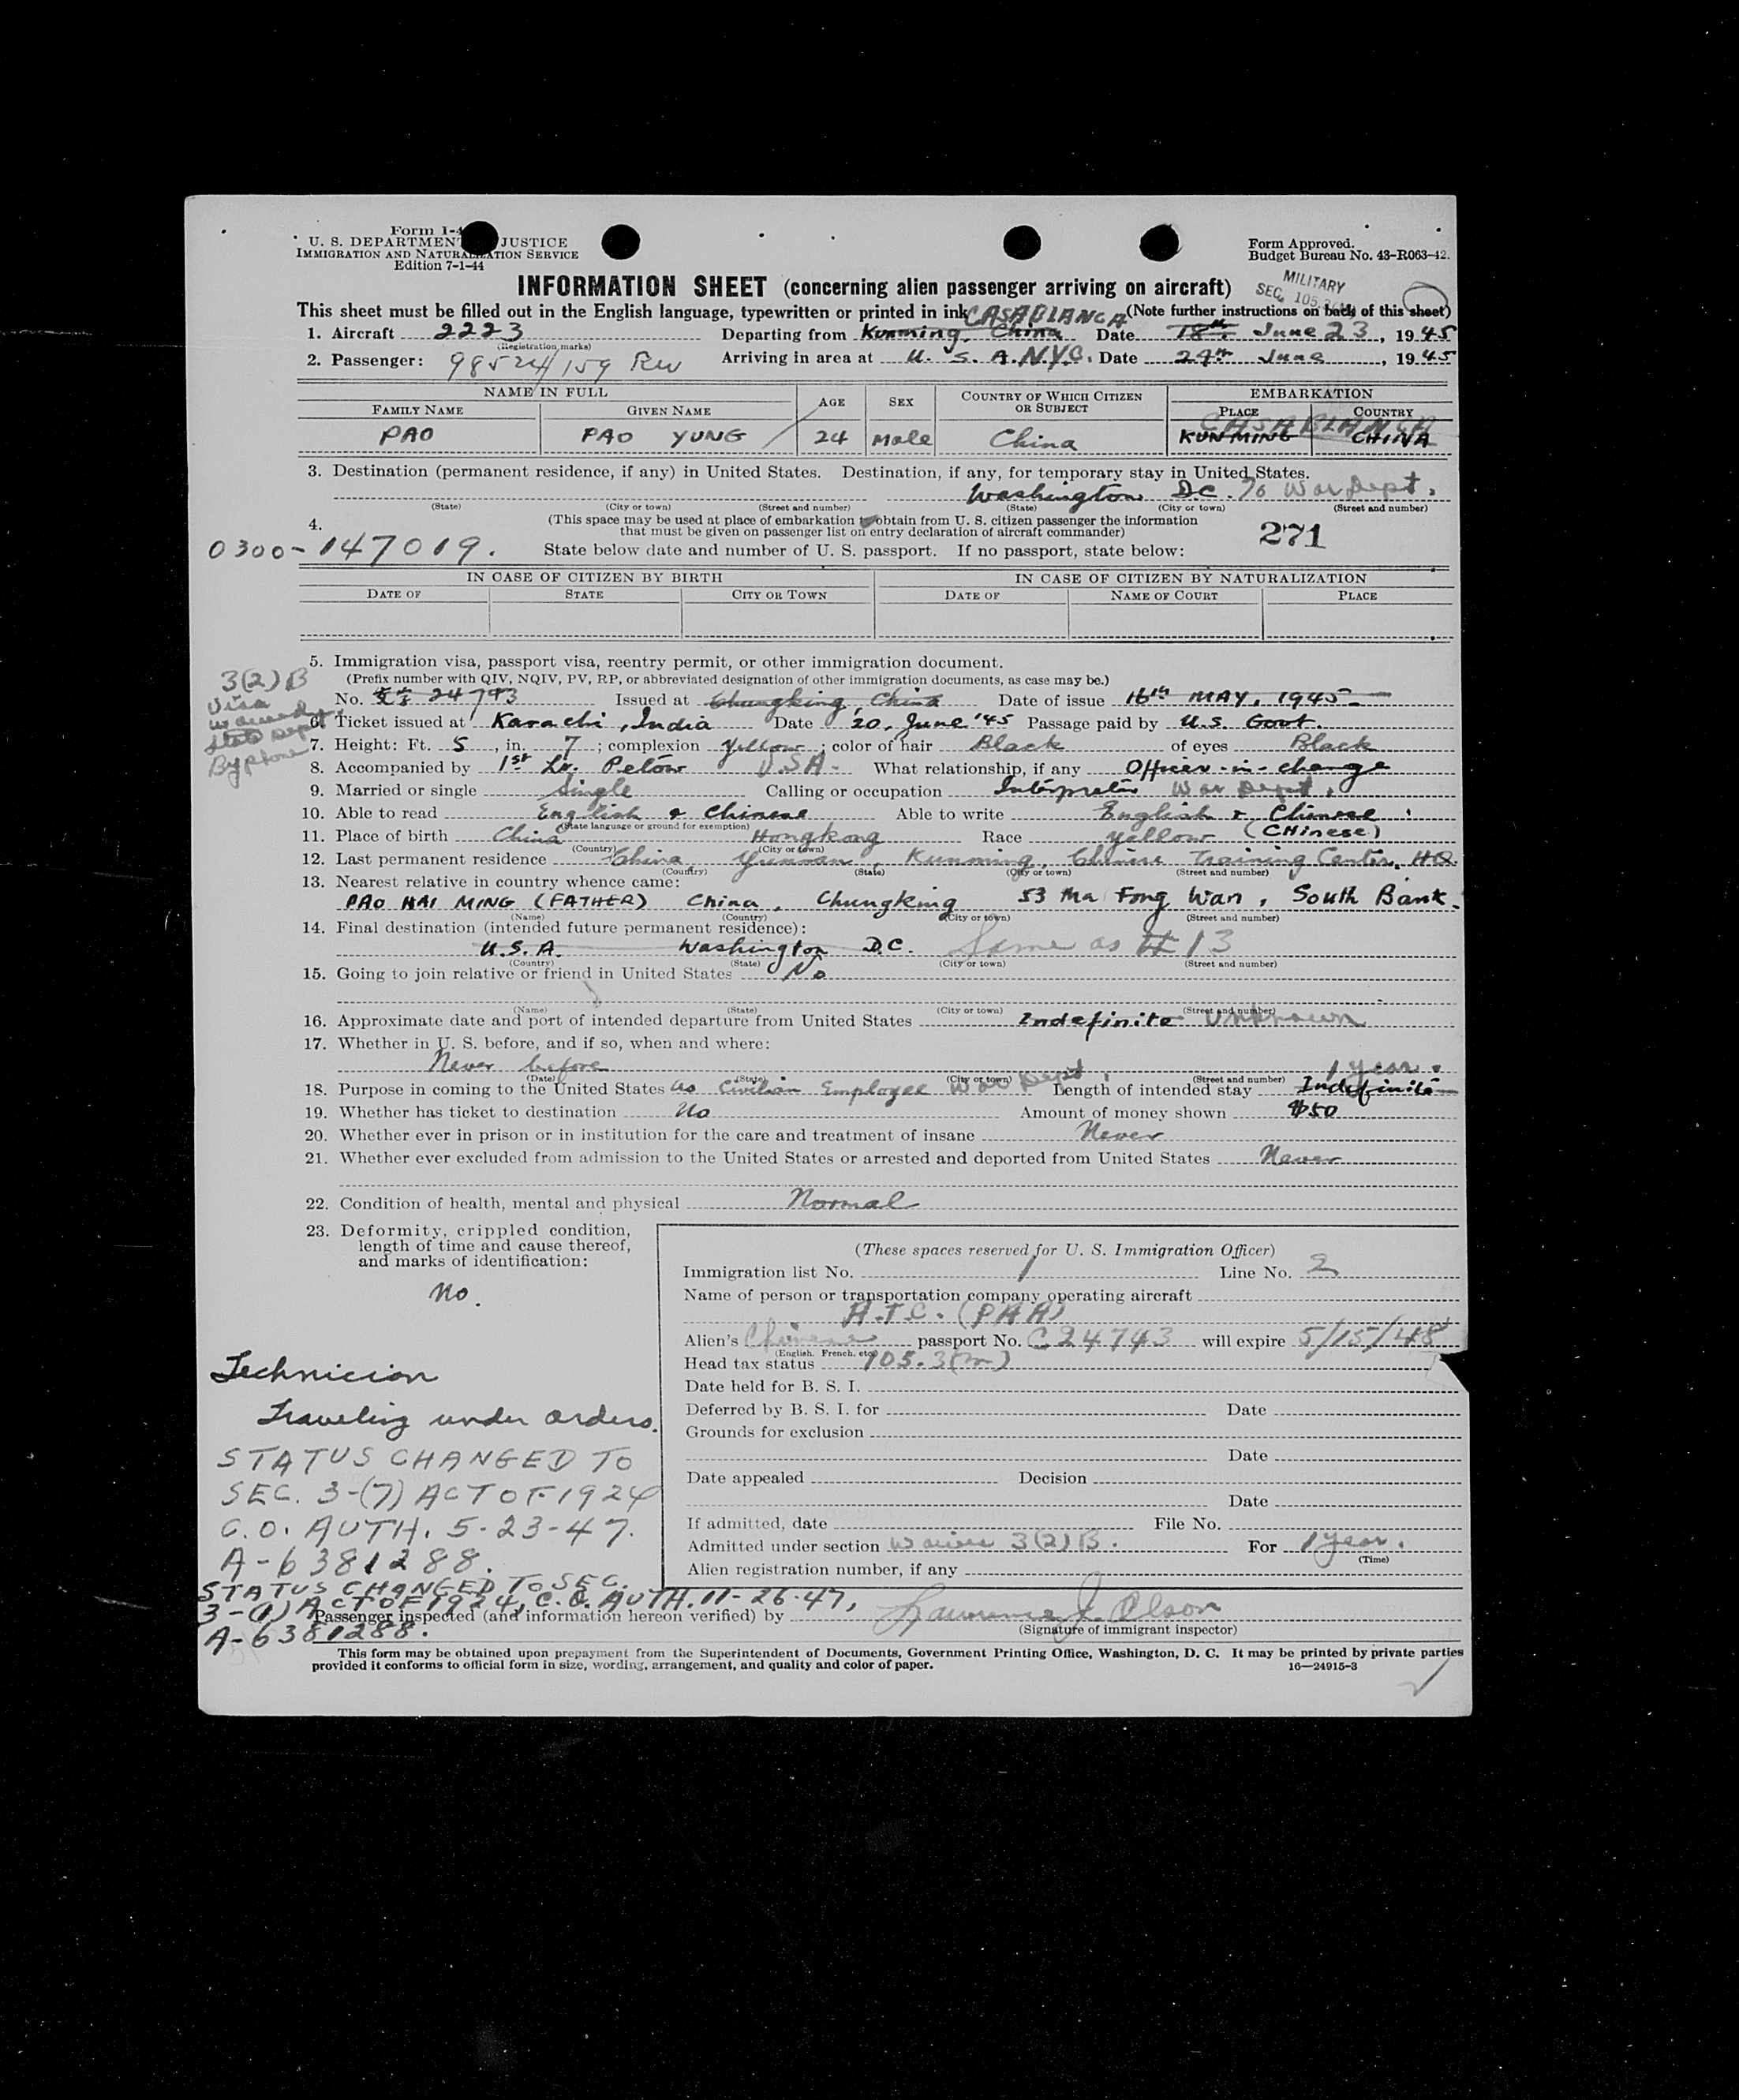 Form I-4
U. S. DEPARTMENT JUSTICE
IMMIGRATION AND NATURALIZATION SERVICE
Edition 7-1-44
Form Approved.
Budget Bureau No. 43-R063-42.
INFORMATION SHEET (concerning alien passenger arriving on aircraft)
MILITARY
SEC. 105.3(M)
This sheet must be filled out in the English language, typewritten or printed in ink. (Note further instructions on back of this sheet)
CASABLANCA
1. Aircraft 2223 Departing from Kunming, China Date 18th June 23, 1945
(Registration marks)
2. Passenger: 98524/159 Arriving in area at U. S. A. N.Y.C. Date 24th June, 1945
NAME IN FULL AGE SEX COUNTRY OF WHICH CITIZEN OR SUBJECT EMBARKATION
FAMILY NAME GIVEN NAME PLACE COUNTRY
CASABLANCA
PAO PAO YUNG 24 Male China KUNMING CHINA
3. Destination (permanent residence, if any) in United States. Destination, if any, for temporary stay in United States.
Washington DC. % War Dept.
(State) (City or town) (Street and number) (State) (City or town) (Street and number)
4. (This space may be used at place of embarkation to obtain from U. S. citizen passenger the information
that must be given on passenger list on entry declaration of aircraft commander)
271
0300-147019. State below date and number of U. S. passport. If no passport, state below:
IN CASE OF CITIZEN BY BIRTH IN CASE OF CITIZEN BY NATURALIZATION
DATE OF STATE CITY OR TOWN DATE OF NAME OF COURT PLACE
5. Immigration visa, passport visa, reentry permit, or other immigration document.
(Prefix number with QIV, NQIV, PV, RP, or abbreviated designation of other immigration documents, as case may be.)
3(2)B
Visa
waived
State Dept
By phone
No. 24743 Issued at Chungking, China Date of issue 16th MAY, 1945
6. Ticket issued at Karachi, India Date 20, June '45 Passage paid by U.S. Govt.
7. Height: Ft. 5, in. 7; complexion Yellow; color of hair Black of eyes Black
8. Accompanied by 1st Lt. Petow U.S.A. What relationship, if any Officer-in-charge
9. Married or single Single Calling or occupation Interpreter War Dept.
10. Able to read English & Chinese Able to write English & Chinese
(State language or ground for exemption)
11. Place of birth China Hongkong Race Yellow (CHinese)
(Country) (City or town)
12. Last permanent residence China, Yunnan, Kunming, Chinese Training Center, HQ.
(Country) (State) (City or town) (Street and number)
13. Nearest relative in country whence came:
PAO HAI MING (FATHER) China, Chungking 53 Ma Fong Wan, South Bank.
(Name) (Country) (City or town) (Street and number)
14. Final destination (intended future permanent residence):
U.S.A. Washington D.C. Same as # 13
(Country) (State) (City or town) (Street and number)
15. Going to join relative or friend in United States No
(Name) (State) (City or town) (Street and number)
16. Approximate date and port of intended departure from United States Indefinite Unknown
17. Whether in U. S. before, and if so, when and where:
Never before 1 year.
(Date) (State) (City or town) (Street and number)
18. Purpose in coming to the United States as Civilian Employee War Dept. Length of intended stay Indefinite
19. Whether has ticket to destination No Amount of money shown $50
20. Whether ever in prison or in institution for the care and treatment of insane Never
21. Whether ever excluded from admission to the United States or arrested and deported from United States Never
22. Condition of health, mental and physical Normal
23. Deformity, crippled condition,
length of time and cause thereof,
and marks of identification:
No.
(These spaces reserved for U. S. Immigration Officer)
Immigration list No. 1 Line No. 2
Name of person or transportation company operating aircraft
A.T.C. (PAA)
Alien's Chinese passport No. C24743 will expire 5/15/48
(English, French, etc.)
Head tax status 105.3(m)
Date held for B. S. I.
Deferred by B. S. I. for Date
Grounds for exclusion
Date
Date appealed Decision
Date
If admitted, date File No.
Admitted under section Waive 3(2)B. For 1 year.
(Time)
Alien registration number, if any
Technician
Traveling under orders.
STATUS CHANGED TO
SEC. 3-(7) ACT OF 1924
C.O. AUTH. 5-23-47.
A-6381288.
STATUS CHANGED TO SEC.
3-(1) ACT OF 1924, C.O. AUTH. 11-26-47,
A-6381288.
Passenger inspected (and information hereon verified) by Lawrence J. Olson
(Signature of immigrant inspector)
This form may be obtained upon prepayment from the Superintendent of Documents, Government Printing Office, Washington, D. C. It may be printed by private parties
provided it conforms to official form in size, wording, arrangement, and quality and color of paper. 16—24915-3